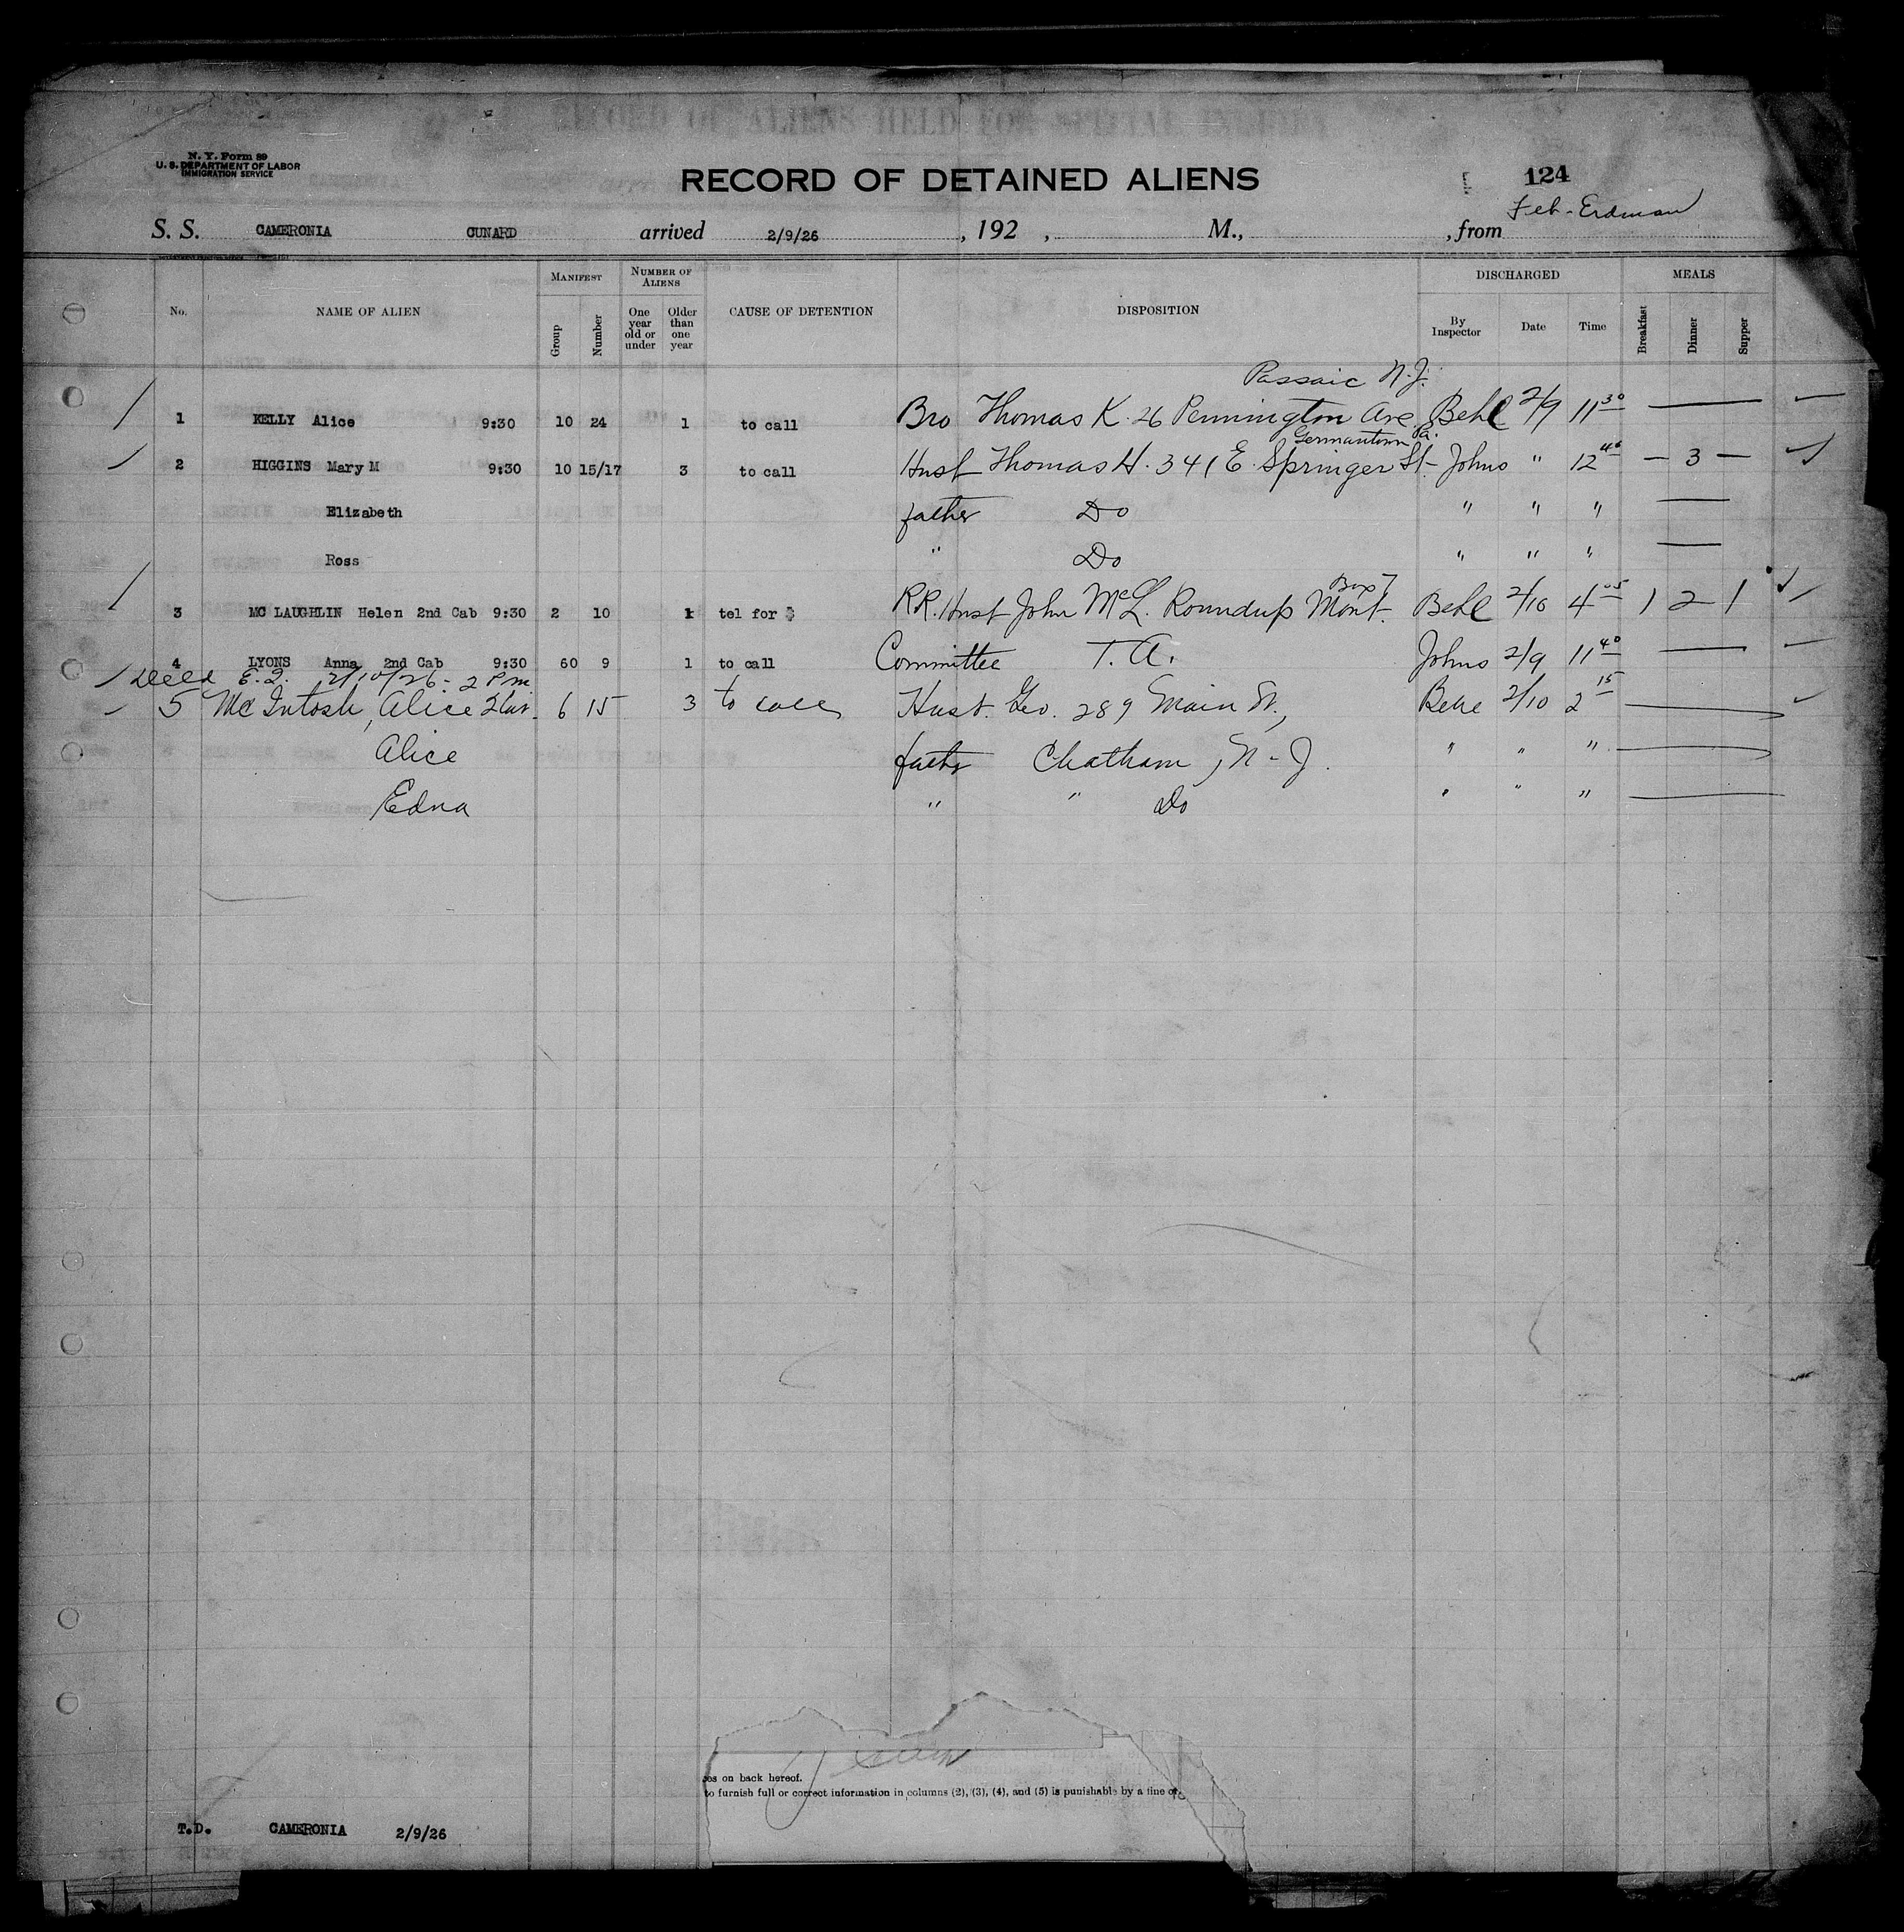 N. Y. Form 89
U. S. DEPARTMENT OF LABOR
IMMIGRATION SERVICE
RECORD OF ALIENS HELD FOR SPECIAL INQUIRY
RECORD OF DETAINED ALIENS
124
Feb - Erdman
S. S. CAMERONIA CUNARD arrived 2/9/26, 192 , M., , from
No. NAME OF ALIEN MANIFEST NUMBER OF ALIENS CAUSE OF DETENTION DISPOSITION DISCHARGED MEALS
Group Number One year old or under Older than one year By Inspector Date Time Breakfast Dinner Supper
Passaic N.J.
1 KELLY Alice 9:30 10 24 1 to call Bro Thomas K. 26 Pennington Ave. Behl 2/9 11 30
Germantown Pa.
2 HIGGINS Mary M 9:30 10 15/17 3 to call Husb Thomas H. 341 E. Springer St- Johns " 12 — 3 —
Elizabeth father Do " " "
Ross " Do " " "
Box 7
3 MC LAUGHLIN Helen 2nd Cab 9:30 2 10 1 tel for RR. Husb John McL. Roundup Mont. Behl 2/10 4 05 1 2 1
4 LYONS Anna 2nd Cab 9:30 60 9 1 to call Committee T. A. Johns 2/9 11 40
2/10/26 - 2 P m
5 McIntosh, Alice 6 15 3 to call Husb. Geo. 289 Main St., Behl 2/10 2 15
Alice father Chatham, N-J. " " "
Edna " " Do " " "
es on back hereof.
to furnish full or correct information in columns (2), (3), (4), and (5) is punishable by a fine of
T.D. CAMERONIA 2/9/26